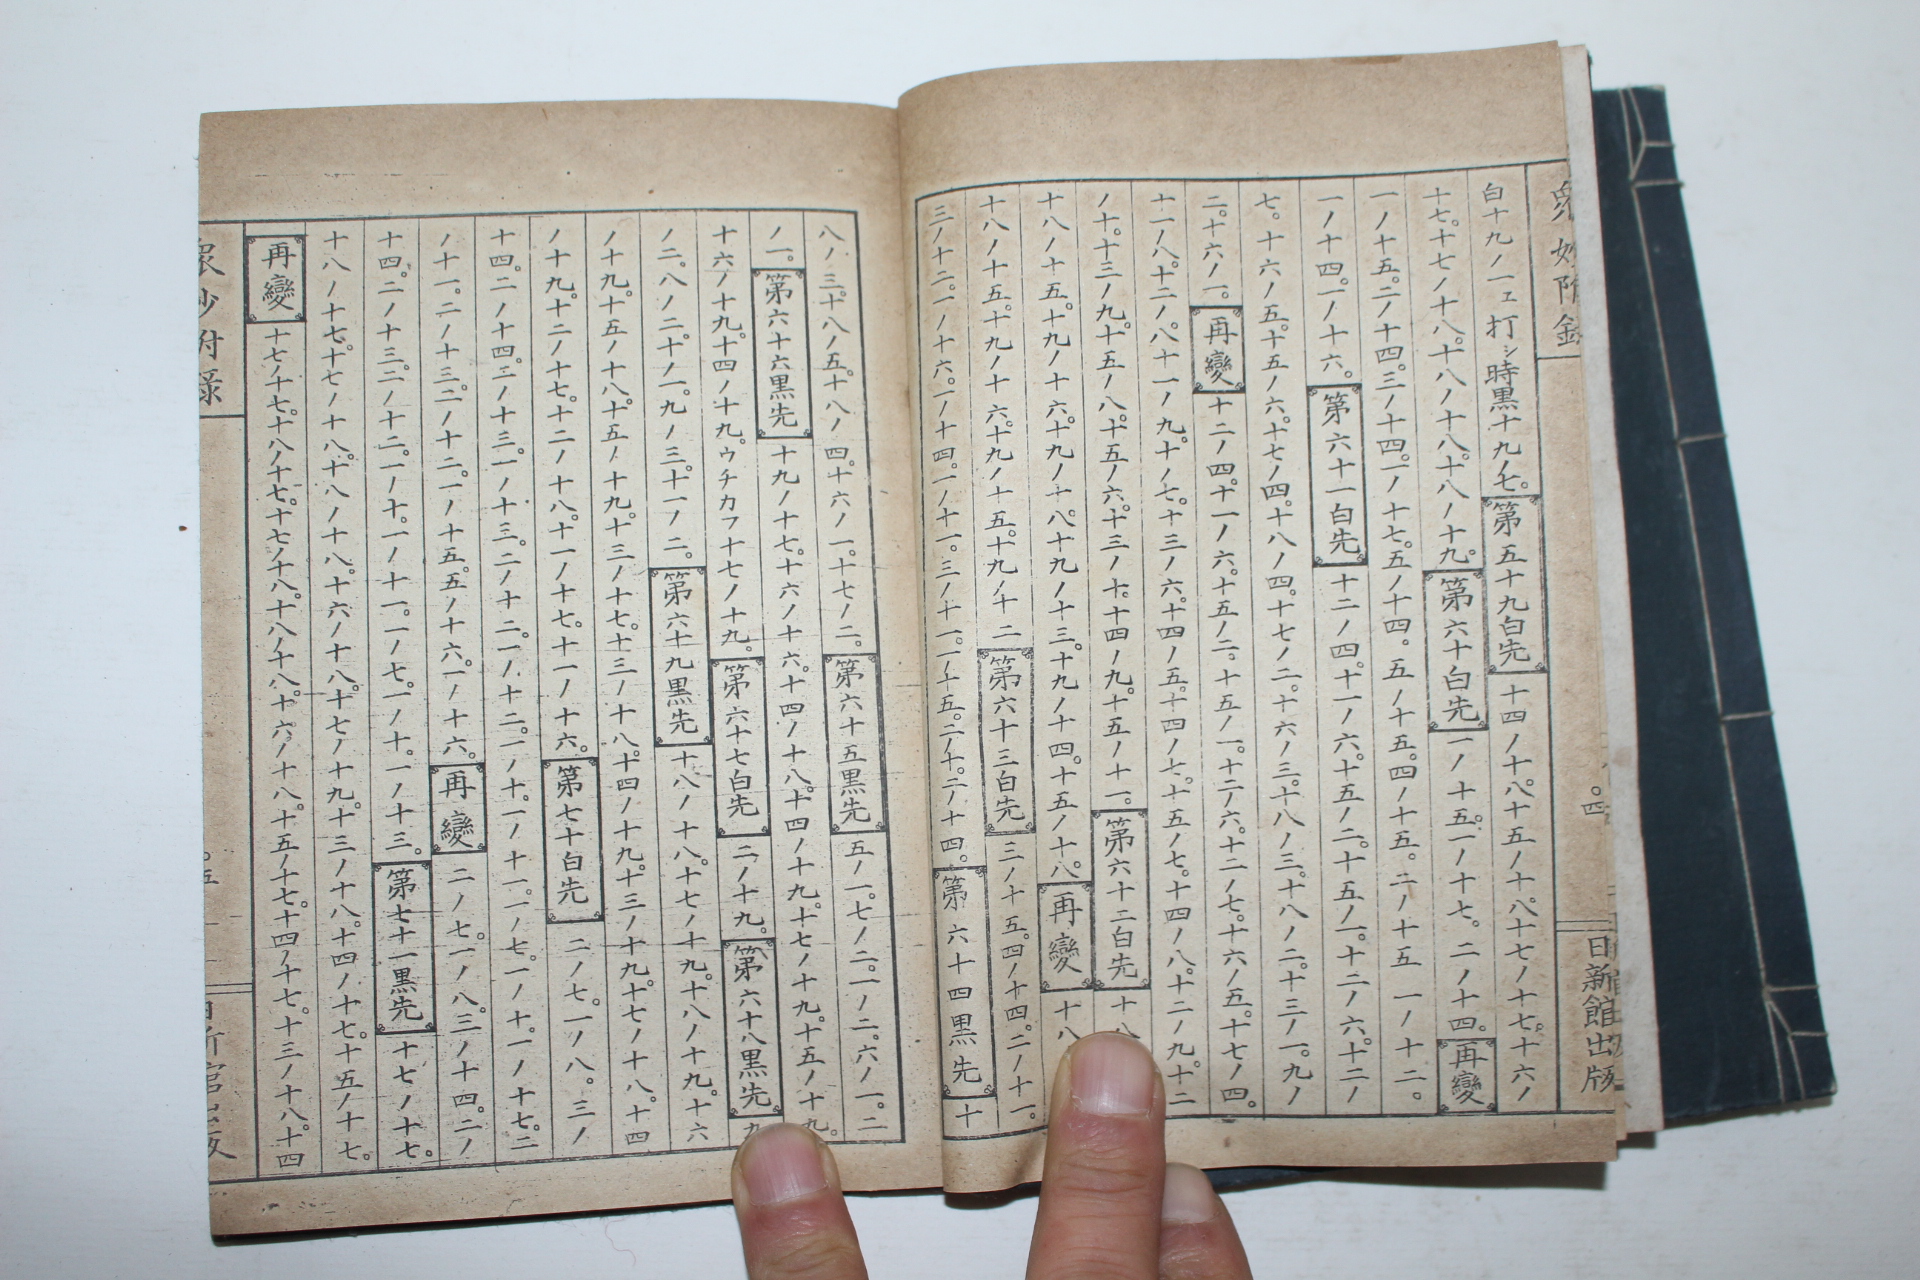 衆妙附録 四 日新館出版
白十九ノ一ェ打シ時黒十九ノ七。第五十九白先十四ノ十八。十五ノ十八。十七ノ十七。十六ノ
十七。十七ノ十八。十八ノ十八。十八ノ十九。第六十白先一ノ十五。一ノ十七。二ノ十四。再變
一ノ十五。二ノ十四。三ノ十四。一ノ十七。五ノ十四。五ノ十五。四ノ十五。二ノ十五一ノ十二。
一ノ十四。一ノ十六。第六十一白先十二ノ四。十一ノ六。十五ノ二。十五ノ一。十二ノ六。十二ノ
七。十六ノ五。十五ノ六。十七ノ四。十八ノ四。十七ノ二。十六ノ三。十八ノ三。十八ノ二。十三ノ一。九ノ
二。十六ノ一。再變十二ノ四。十一ノ六。十五ノ二。十五ノ一。十二ノ六。十二ノ七。十六ノ五。十七ノ四。
十一ノ八。十二ノ八。十一ノ九。十ノ七。十三ノ六。十四ノ五。十四ノ七。十五ノ七。十四ノ八。十二ノ九。十二
ノ十。十三ノ九。十五ノ八。十五ノ六。十三ノ十。十四ノ九。十五ノ十一。第六十二白先十八
十八ノ十五。十九ノ十六。十九ノ十八。十九ノ十三。十九ノ十四。十五ノ十八。再變十八
十八ノ十五。十九ノ十六。十九ノ十五。十九ノ十二第六十三白先三ノ十五。四ノ十四。二ノ十一。
三ノ十二。一ノ十六。一ノ十四。一ノ十一。三ノ十一。一ノ十五。二ノ十。二ノ十四。第六十四黒先十
八ノ三。十八ノ五。十八ノ四。十六ノ一。十七ノ二。第六十五黒先五ノ一。七ノ二。一ノ二。六ノ一。二
ノ一。第六十六黒先十九ノ十七。十六ノ十六。十四ノ十八。十四ノ十九。十七ノ十九。十五ノ十九。
十六ノ十九。十四ノ十九。ウチカフ十七ノ十九。第六十七白先二ノ十九。第六十八黒先九
ノ二。八ノ二。十ノ一。九ノ三。十一ノ二。第六十九黒先十八ノ十八。十七ノ十九。十八ノ十九。十六
ノ十九。十五ノ十八。十五ノ十九。十三ノ十七。十三ノ十八。十四ノ十九。十三ノ十九。十七ノ十八。十四
ノ十九。十二ノ十七。十二ノ十八。十一ノ十七。十一ノ十六。第七十白先二ノ七。一ノ八。三ノ
十四。二ノ十四。二ノ十三。一ノ十三。二ノ十二。一ノ十二。一ノ十。一ノ十一。一ノ七。一ノ十。一ノ十七。二
ノ十一。二ノ十三。二ノ十二。一ノ十五。五ノ十六。一ノ十六。再變二ノ七。一ノ八。三ノ十四。二ノ
十四。二ノ十三。二ノ十二。一ノ十。一ノ十一。一ノ七。一ノ十。一ノ十三。第七十一黒先十七ノ十七。
十八ノ十七。十七ノ十八。十八ノ十八。十六ノ十八。十七ノ十九。十三ノ十八。十四ノ十七。十五ノ十七。
再變十七ノ十七。十八ノ十七。十七ノ十八。十八ノ十八。十六ノ十八。十五ノ十七。十四ノ十七。十三ノ十八。十四
衆妙附録 五 日新館出版